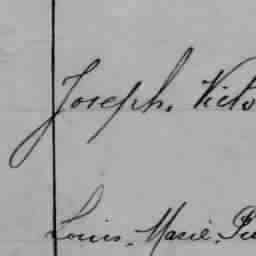 Joseph. Victo
Louis. Marie. Pie